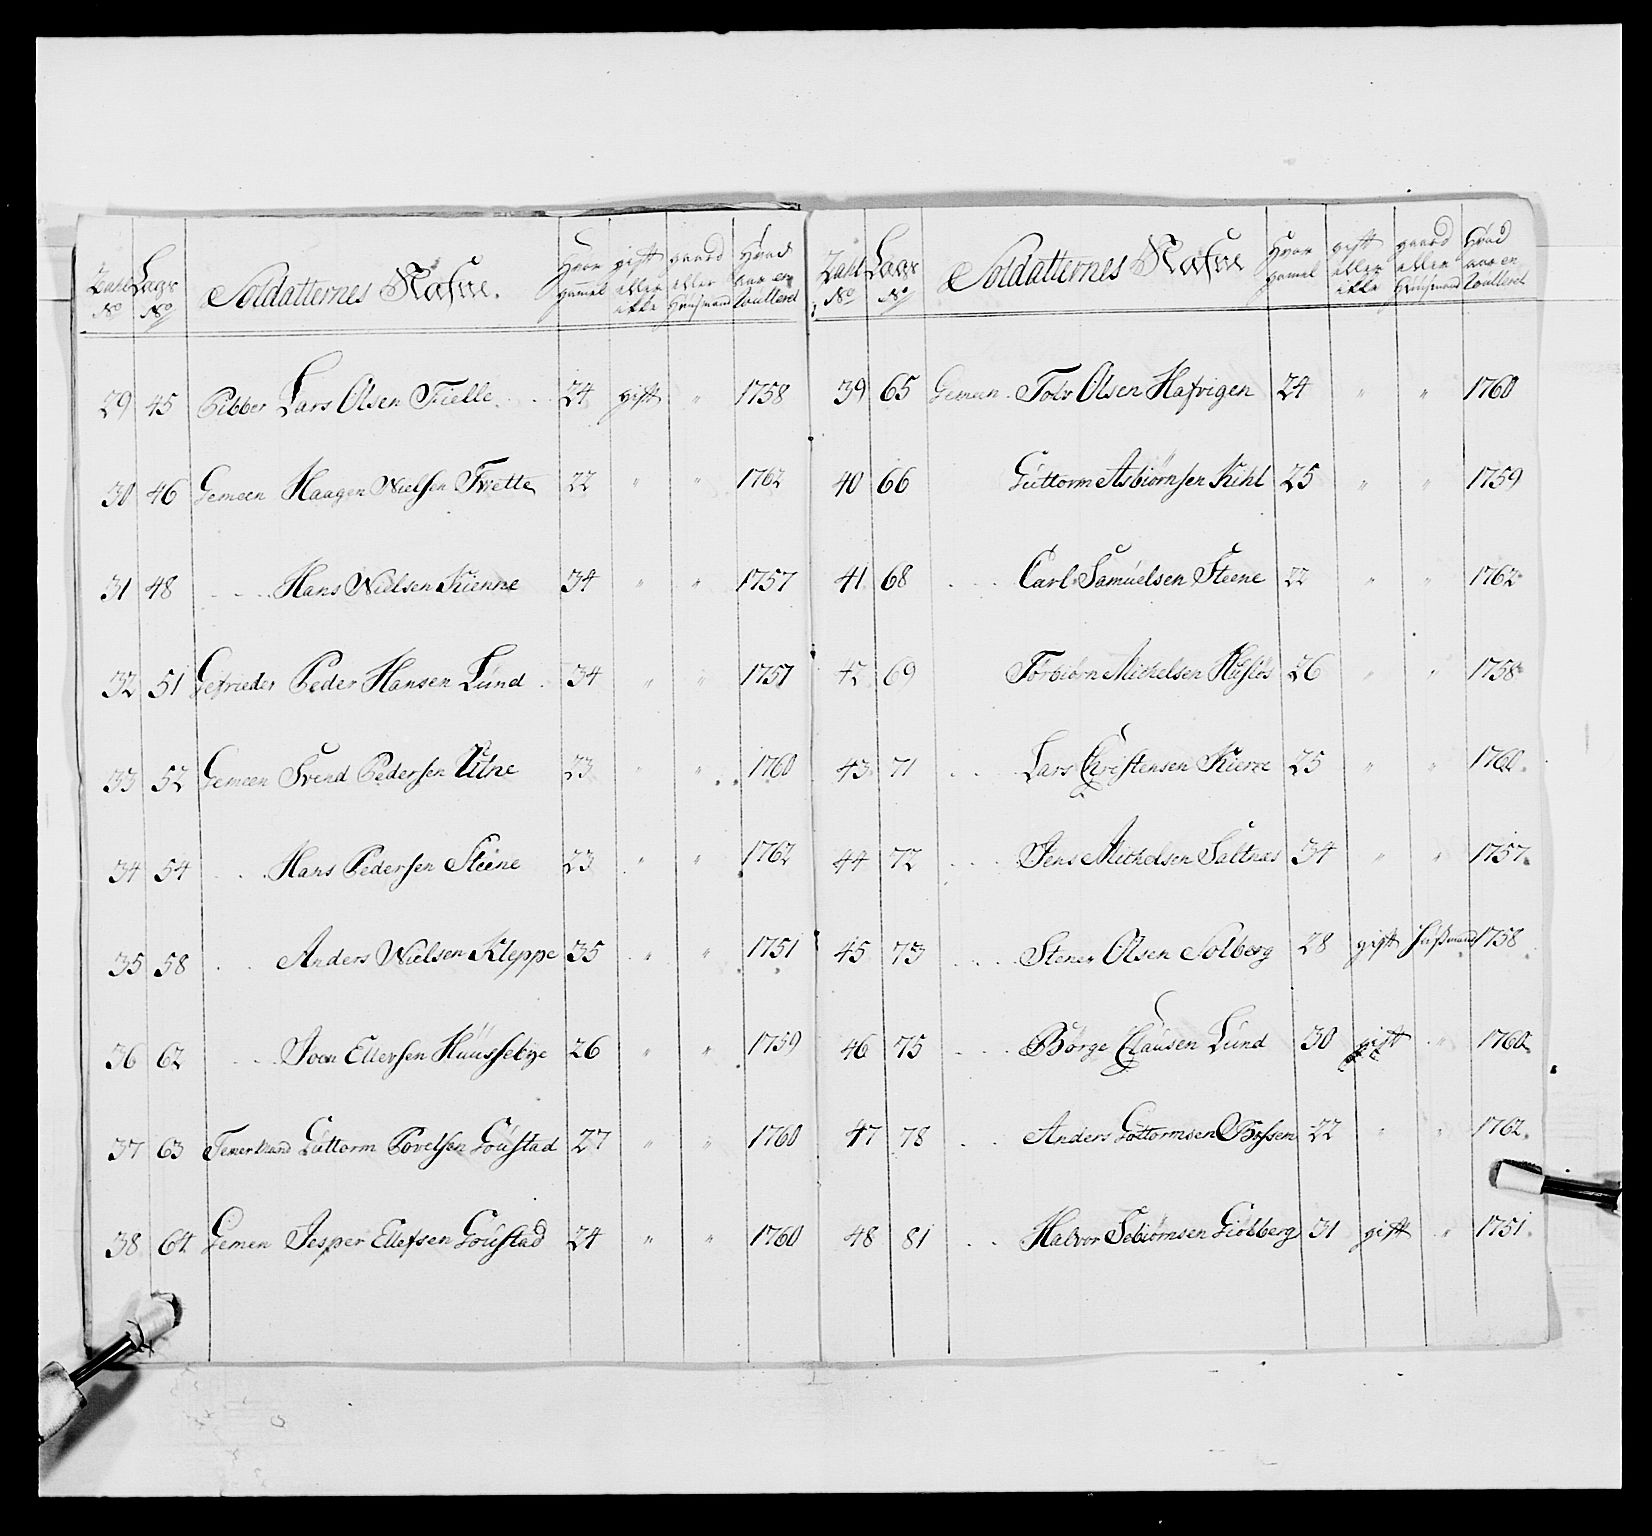 Zahl No Lags No Soldatternes Nafne. Hvor gammel gift eller ikke gaard eller Huusmand Hvad aar en Roulleret
29 45 Pibber Lars Olsen Fielle 24 gift " 1758
30 46 Gemeen Haagen Nielsen Tvette 22 " " 1762
31 48 Hans Nielsen Kienne 34 " " 1757
32 51 Gefrieder Peder Hansen Lund 34 " " 1757
33 52 Gemeen Svend Pedersen Utne 23 " " 1760
34 54 Hans Pedersen Steene 23 " " 1762
35 58 Anders Nielsen Kleppe 35 " " 1751
36 62 Joen Ellefsen Huusebye 26 " " 1759
37 63 Guttorm Povelsen Goustad 27 " " 1760
38 64 Gemen Jesper Ellefsen Goustad 24 " " 1760
Zahl No Lags No Soldatternes Nafne Hvor gammel gift eller ikke gaard eller Huusmand Hvad aar en Roulleret
39 65 Gemeen Tolv Olsen Hafvigen 24 " " 1760
40 66 Guttorm Asbiørnsen Kihl 25 " " 1759
41 68 Carl Samuelsen Steene 22 " " 1762
42 69 Torbiørn Mikkelsen 26 " " 1758
43 71 Lars Christensen Kierre 25 " " 1760
44 72 Jens Mikkelsen Saltnes 34 " " 1757
45 73 Stener Olsen Solberg 28 gift Husmand 1758
46 75 Børge Clausen Lund 30 gift " 1760
47 78 Anders Guttormsen 22 " " 1762
48 81 Halvor 31 gift " 1751